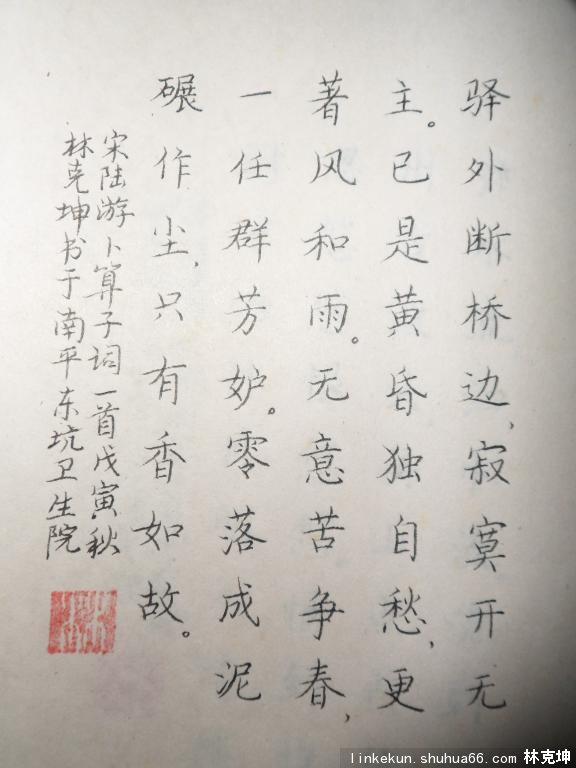 驿外断桥边、寂寞开无
主。已是黄昏独自愁,更
著风和雨。无意苦争春,
一任群芳妒。零落成泥
碾作尘,只有香如故。
宋陆游卜算子词一首戊寅秋
林克坤书于南平东坑卫生院
linkekun.shuhua66.com 林克坤